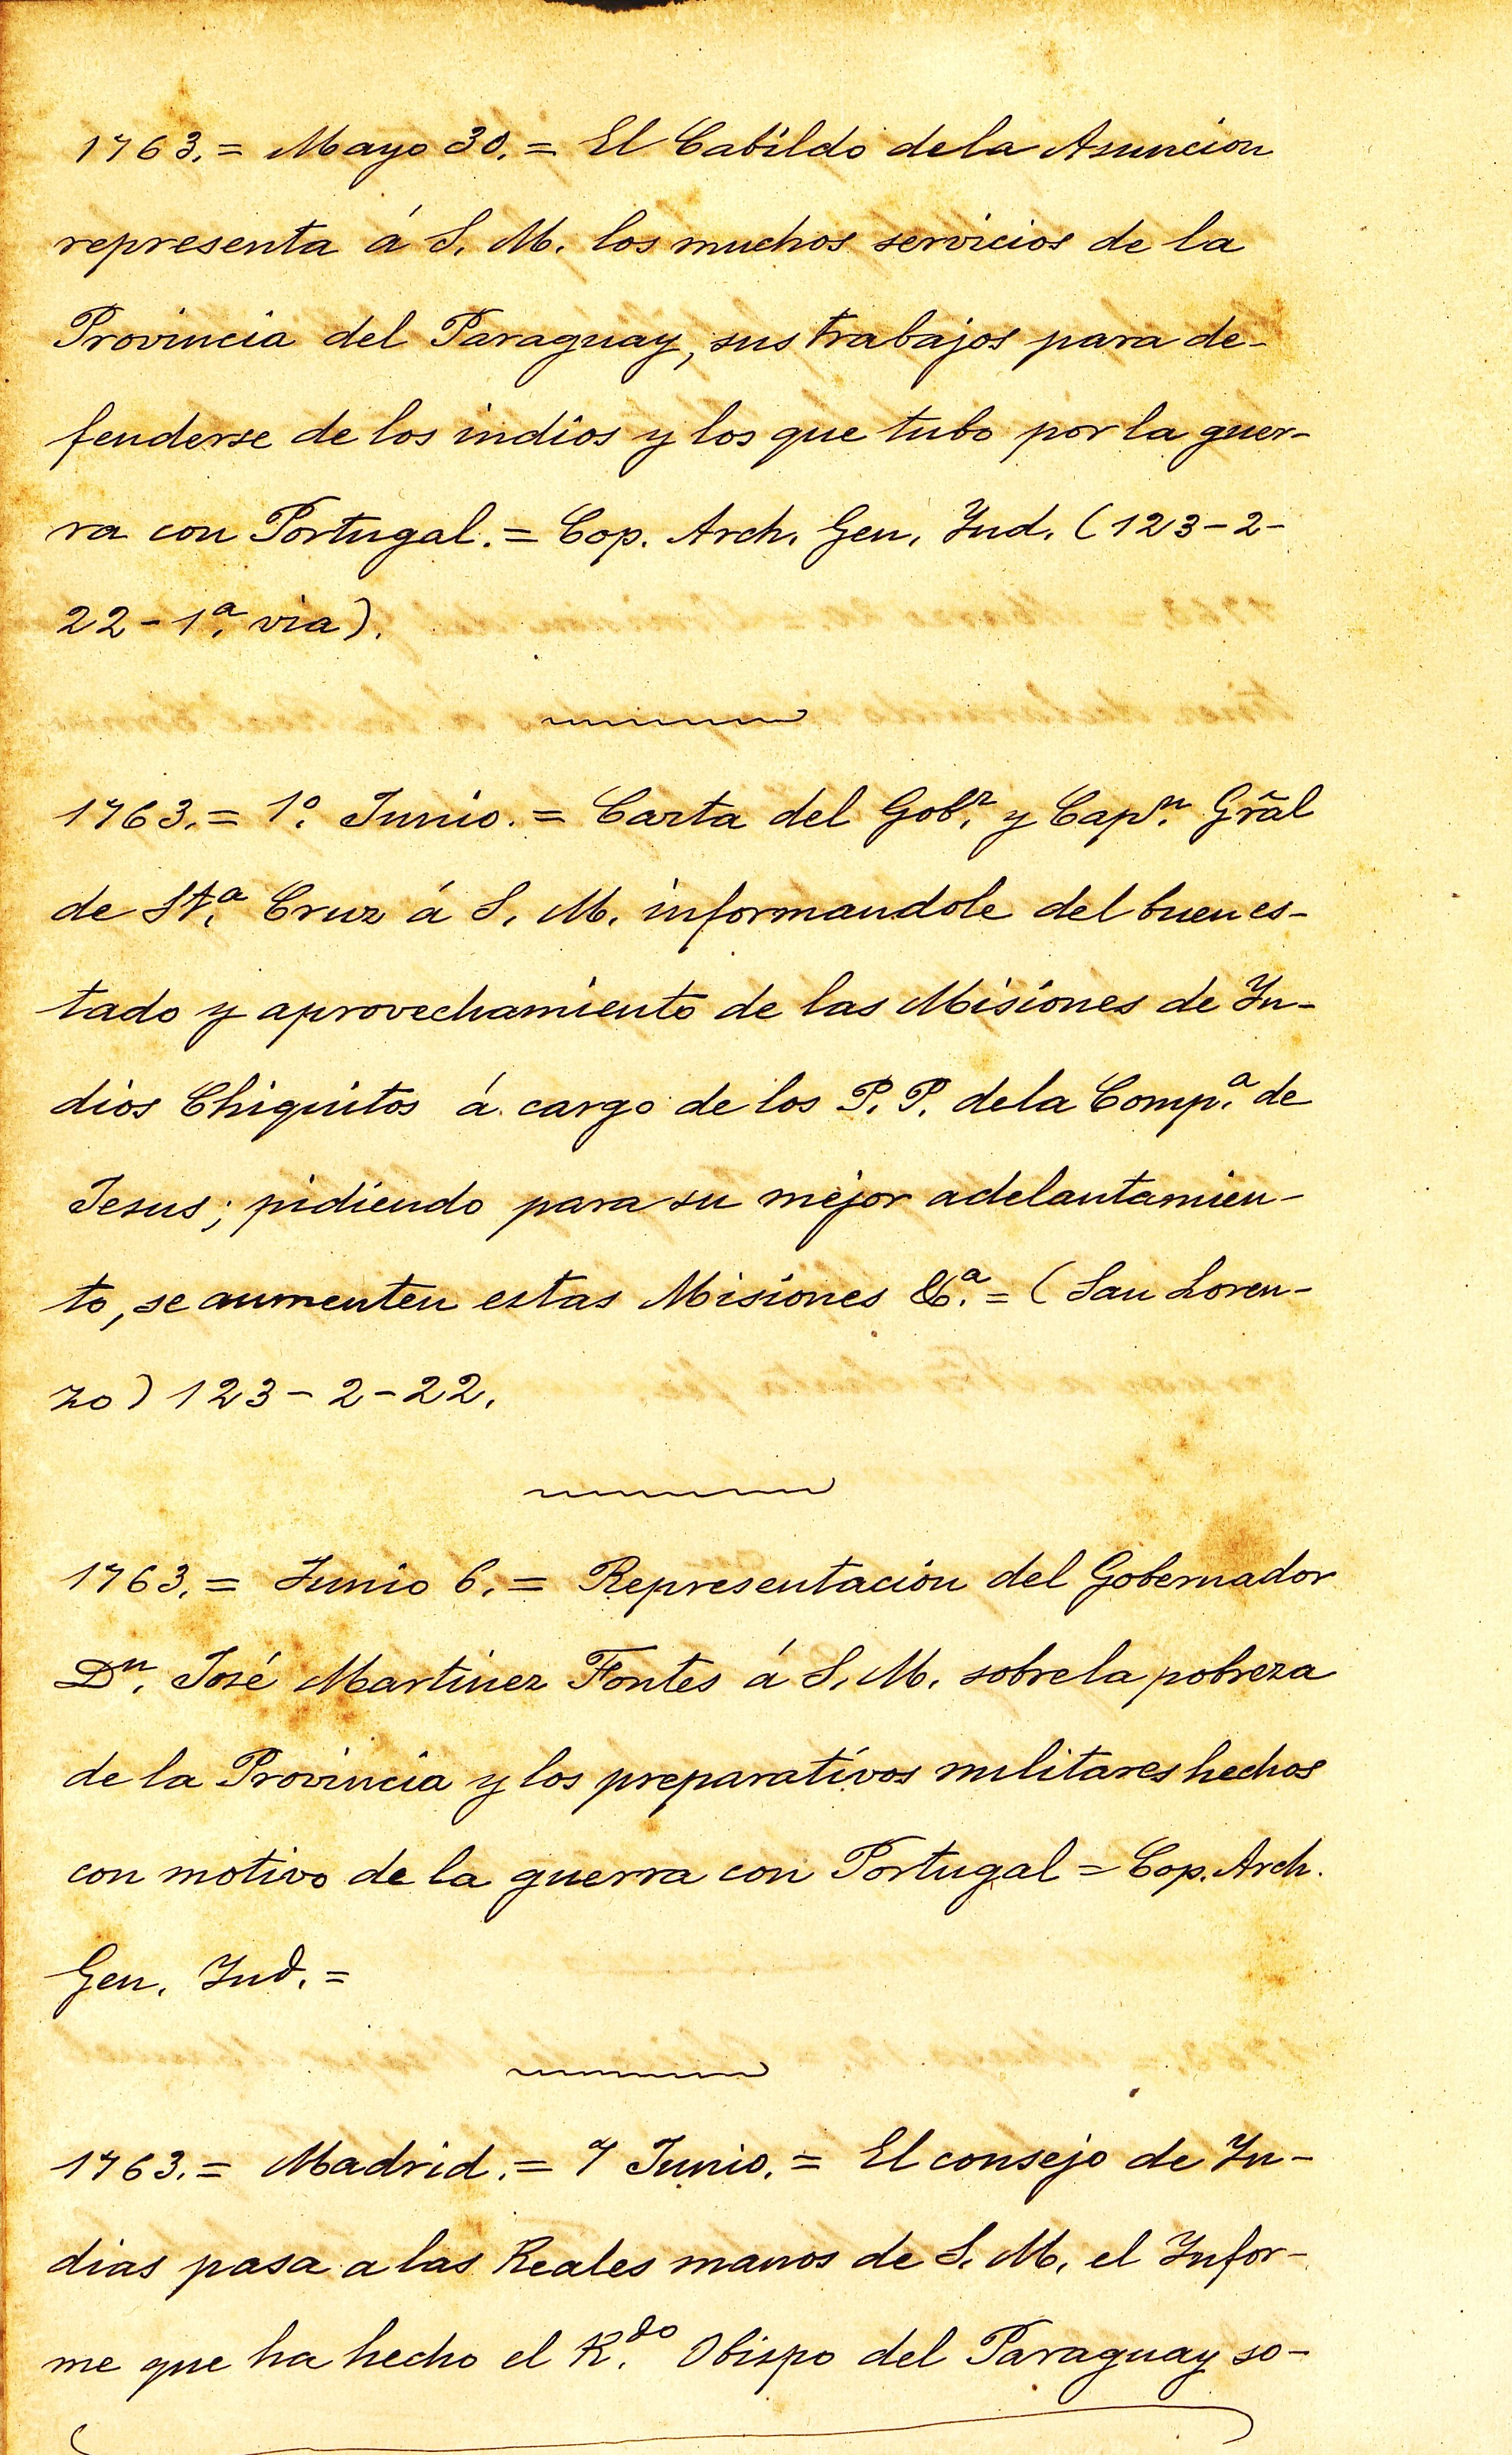 1763.= Mayo 30.= El Cabildo dela Asuncion
representa á S. M. los muchos servicios de la
Provincia del Paraguay, sus trabajos para de-
fenderse de los indios y los que tubo por la guer-
ra con Portugal.= Cop. Arch. Gen. Ind. (123-2-
22-1.ª via).
1763.= 1.º Junio.= Carta del Gob.r y Cap.n Grãl
de St.ª Cruz á S. M. informandole del buen es-
tado y aprovechamiento de las Misiones de In-
dios Chiquitos á cargo de los P. P. dela Comp.ª de
Jesus; pidiendo para su mejor adelantamien-
to, se aumenten estas Misiones &.ª = (San Loren-
zo) 123-2-22.
1763.= Junio 6.= Representacion del Gobernador
D.n José Martinez Fontes á S. M. sobre la pobreza
de la Provincia y los preparativos militares hechos
con motivo de la guerra con Portugal = Cop. Arch.
Gen. Ind.=
1763.= Madrid.= 7 Junio.= El consejo de In-
dias pasa a las Reales manos de S. M. el Infor-
me que ha hecho el R.do Obispo del Paraguay so-